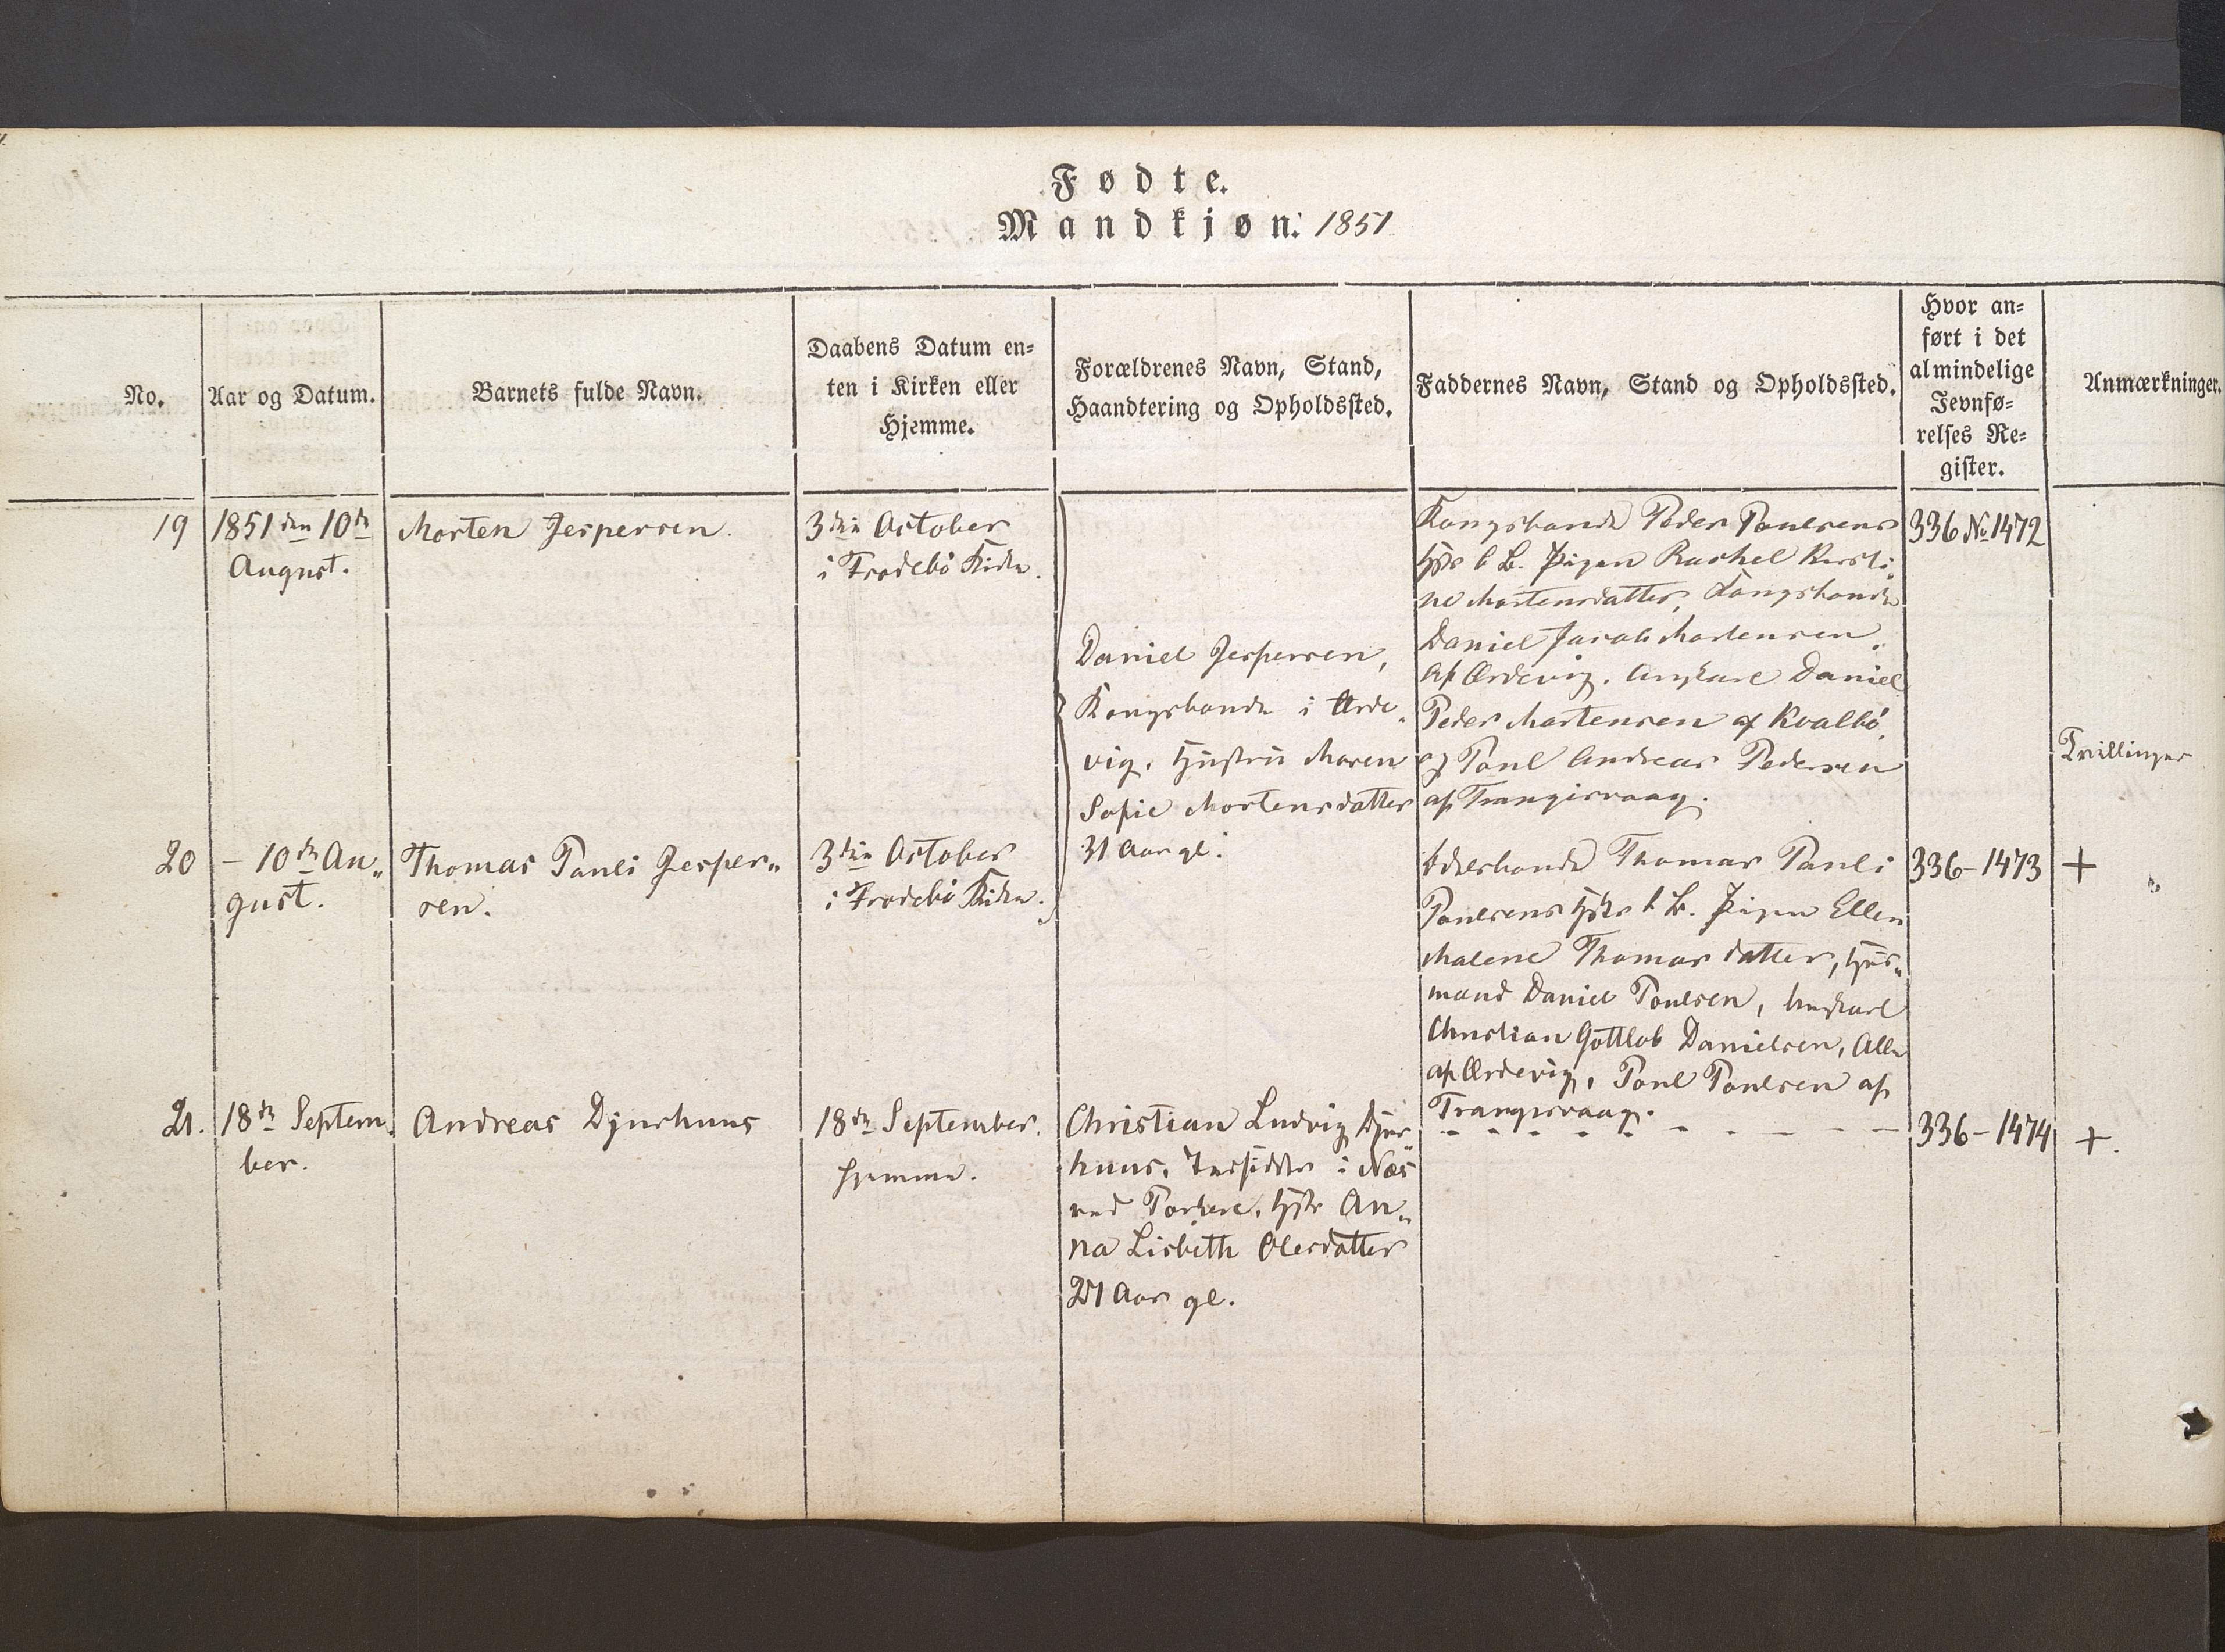 Fødte.
Mandkjøn: 1851
No.
Aar og Datum.
Barnets fulde Navn.
Daabens Datum en-
ten i Kirken eller
Hjemme.
Forældrenes Navn, Stand,
Haandtering og Opholdssted.
Faddernes Navn, Stand og Opholdssted.
Hvor an-
ført i det
almindelige
Jevnfø-
relses Re-
gister.
Anmærkninger.
19
1851 den 10de
August.
Morten Jespersen.
3die October
i Frodebö Kirke.
Daniel Jespersen,
Kongsbonde i Örde-
vig. Hustru Maren
Sofie Mortensdatter
31 Aar gl.
Kongsbonde Peder Poulsens
Hstr b. B. Pigen Rachel Kirsti-
ne Mortensdatter, Kongsbonde
Daniel Jacob Mortensen
af Ördevig. Ungkarl Daniel
Peder Mortensen af Kvalbö,
og Poul Andreas Pedersen
af Trangisvaag.
336 No 1472
Tvillinger
20
- 10de Au-
gust.
Thomas Pauli Jesper-
sen.
3die October
i Frodebö Kirke.
Odelsbonde Thomas Pauli
Poulsens Hstr b. B. Pigen Ellen
Malene Thomasdatter, Huus-
mand Daniel Poulsen, Ungkarl
Christian Gottlob Danielsen, Alle
af Ördevig, Poul Poulsen af
Trangisvaag.
336 - 1473
+ "
21.
18de Septem-
ber.
Andreas Djurhuus
18de September.
hjemme.
Christian Ludvig Djur-
huus, Indsidder i Næs
ved Porkere, Hstr An-
na Lisbeth Olesdatter
27 Aar gl.
336 - 1474
+.